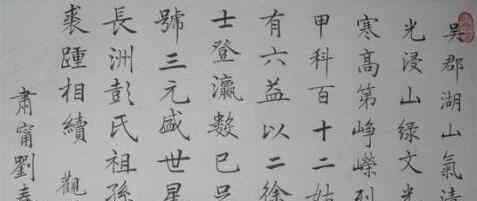 吳郡湖山氣清
光浸山綠文光
寒高第崢嶸列
甲科百十二姑
有六益以二徐
士登瀛數已
號三元盛世星
長洲彭氏祖孫
裘踵相續 觀
肅甯劉春